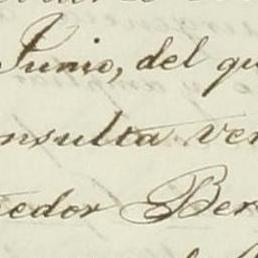 Junio, del qu
nsulta ver
edor Ber